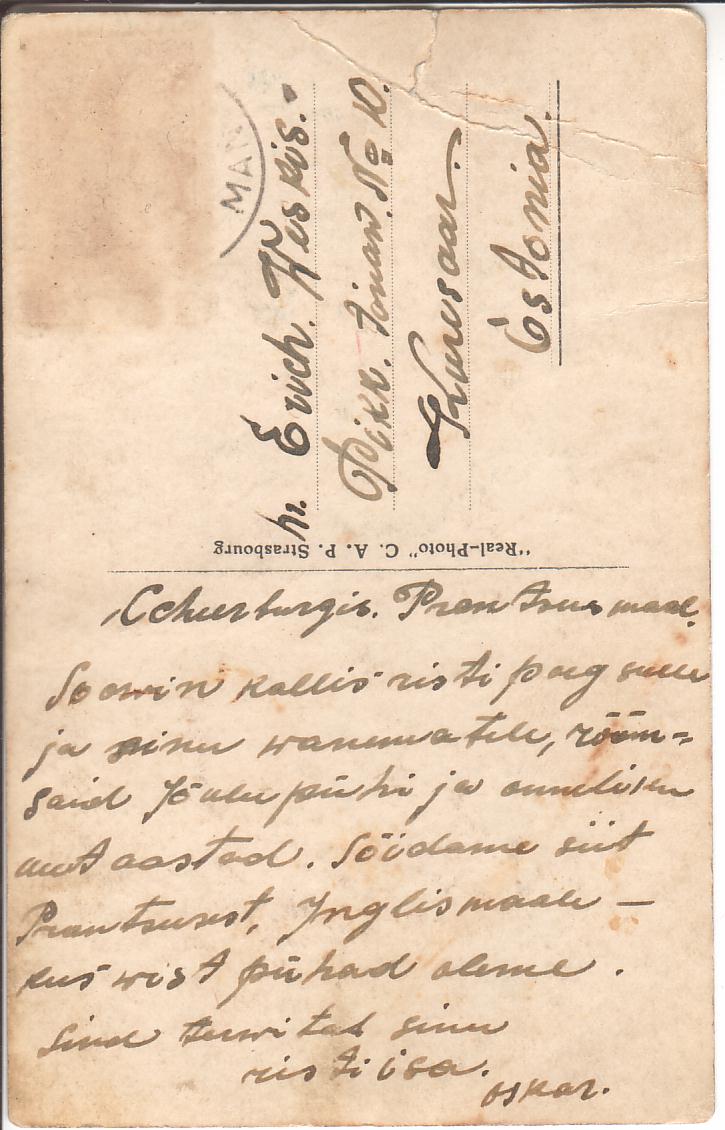 MAN
hr. Erich. Keskis.
Pikk. tänaw. № 10.
Kuresaar.
Estonia.
"Real-Photo" C. A. P. Strasbourg
Cchuerburgis. Prantsusmaal.
Soowin kallis risti poeg sulle
ja sinu wanematele, rõõm=
said Jõulu pühi ja õnnelikku
uut aastad. Sõidame siit
Prantsusest, Inglismaale —
kus wist pühad oleme.
Sind terwitab sinu
risti isa.
Oskar.